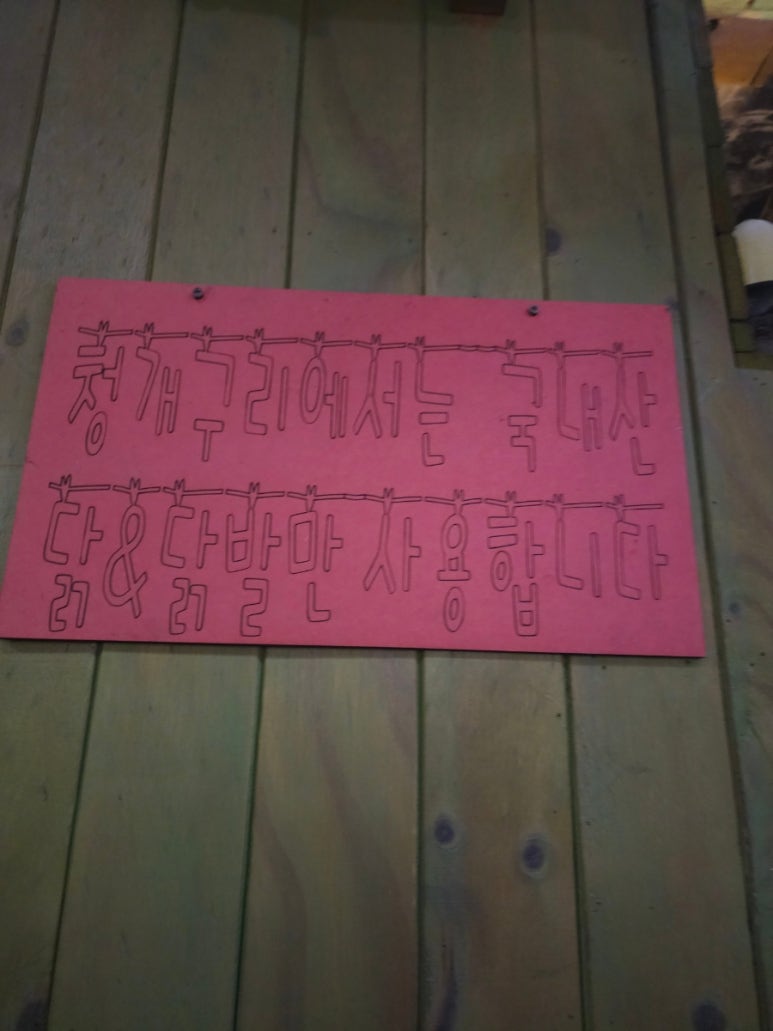 청개구리에서는 국내산
닭&닭발만 사용합니다